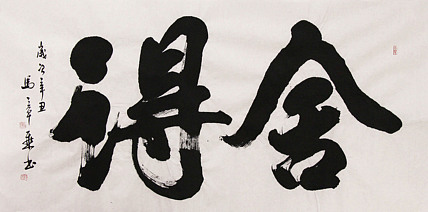 舍得
歲次辛丑
馬
書